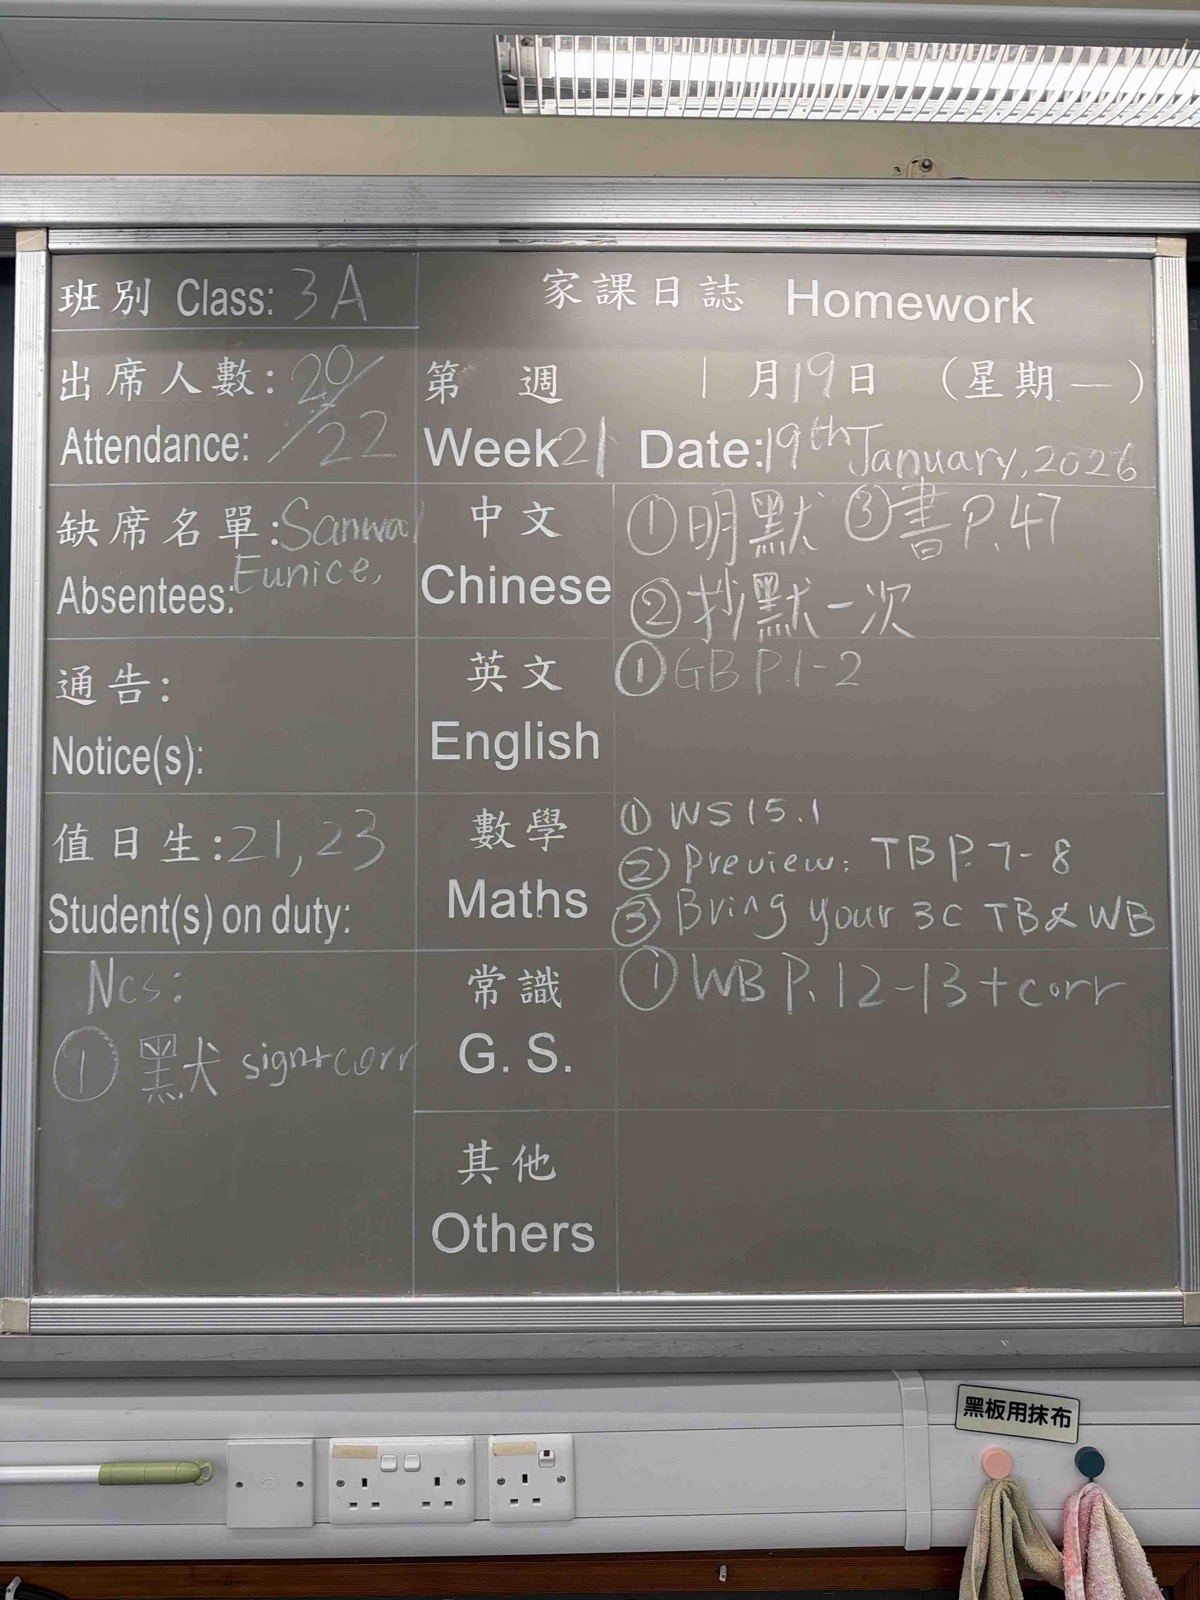 班別 Class: 3A
家課日誌 Homework
出席人數: 20/22
Attendance:
第 週 1月19日 (星期一)
Week 21 Date: 19th January, 2026
缺席名單: Sanwal
Absentees: Eunice,
中文 ①明默 ③書P.47
Chinese ②抄默一次
通告:
Notice(s):
英文 ①GB P.1-2
English
值日生: 21, 23
Student(s) on duty:
數學 ① WS15.1
② Preview: TB P.7-8
Maths ③ Bring your 3C TB & WB
Ncs:
① 默 sign+corr
常識 ① WB P.12-13+corr
G. S.
其他
Others
黑板用抹布